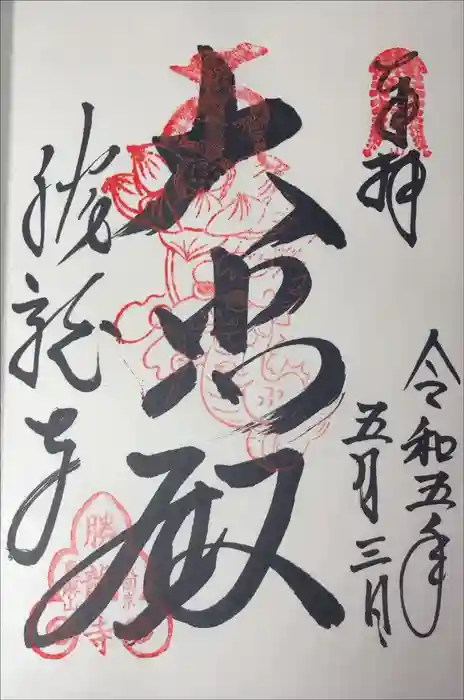 奉拝
令和五年
五月三日
大悲殿
勝龍寺
勝
寺